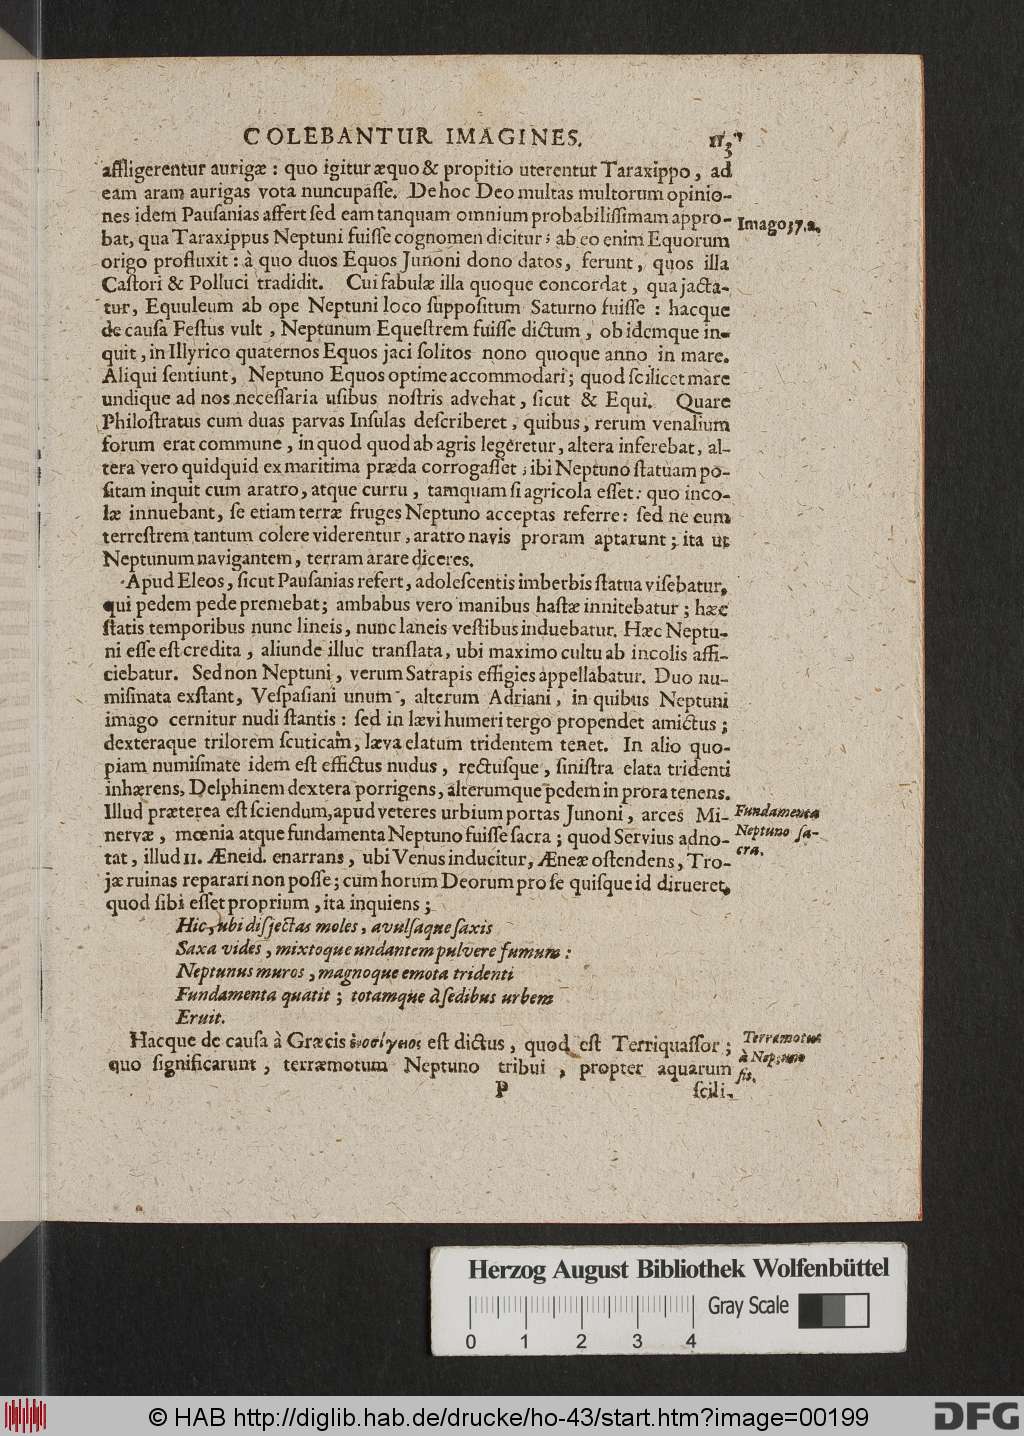 COLEBANTUR IMAGINES. 113
affligerentur aurigæ : quo igitur æquo & propitio uterentur Taraxippo, ad
eam aram aurigas vota nuncupaſſe. De hoc Deo multas multorum opinio-
nes idem Pauſanias affert ſed eam tanquam omnium probabiliſſimam appro-
Imago 37. a.
bat, qua Taraxippus Neptuni fuiſſe cognomen dicitur; ab eo enim Equorum
origo profluxit : à quo duos Equos Junoni dono datos, ferunt, quos illa
Caſtori & Polluci tradidit. Cui fabulæ illa quoque concordat, qua jacta-
tur, Equuleum ab ope Neptuni loco ſuppoſitum Saturno fuiſſe : hacque
de cauſa Feſtus vult, Neptunum Equeſtrem fuiſſe dictum, ob idemque in-
quit, in Illyrico quaternos Equos jaci ſolitos nono quoque anno in mare.
Aliqui ſentiunt, Neptuno Equos optime accommodari; quod ſcilicet mare
undique ad nos neceſſaria uſibus noſtris advehat, ſicut & Equi. Quare
Philoſtratus cum duas parvas Inſulas deſcriberet, quibus, rerum venalium
forum erat commune, in quod quod ab agris legeretur, altera inferebat, al-
tera vero quidquid ex maritima præda corrogaſſet; ibi Neptuno ſtatuam po-
ſitam inquit cum aratro, atque curru, tamquam ſi agricola eſſet: quo inco-
læ innuebant, ſe etiam terræ fruges Neptuno acceptas referre: ſed ne eum
terreſtrem tantum colere viderentur, aratro navis proram aptarunt; ita ut
Neptunum navigantem, terram arare diceres.
Apud Eleos, ſicut Pauſanias refert, adoleſcentis imberbis ſtatua viſebatur,
qui pedem pede premebat; ambabus vero manibus haſtæ innitebatur; hæc
ſtatis temporibus nunc lineis, nunc laneis veſtibus induebatur. Hæc Neptu-
ni eſſe eſt credita, aliunde illuc tranſlata, ubi maximo cultu ab incolis affi-
ciebatur. Sed non Neptuni, verum Satrapis effigies appellabatur. Duo nu-
miſmata exſtant, Veſpaſiani unum, alterum Adriani, in quibus Neptuni
imago cernitur nudi ſtantis : ſed in lævi humeri tergo propendet amictus;
dexteraque trilorem ſcuticam, læva elatum tridentem tenet. In alio quo-
piam numiſmate idem eſt effictus nudus, rectuſque, ſiniſtra elata tridenti
inhærens, Delphinem dextera porrigens, alterumque pedem in prora tenens.
Illud præterea eſt ſciendum, apud veteres urbium portas Junoni, arces Mi-
Fundamenta
nervæ, mœnia atque fundamenta Neptuno fuiſſe ſacra; quod Servius adno-
Neptuno ſa-
tat, illud II. Æneid. enarrans, ubi Venus inducitur, Æneæ oſtendens, Tro-
cra.
jæ ruinas reparari non poſſe; cum horum Deorum pro ſe quiſque id dirueret,
quod ſibi eſſet proprium, ita inquiens;
Hic, ubi disjectas moles, avulſaque ſaxis
Saxa vides, mixtoque undantem pulvere fumum:
Neptunus muros, magnoque emota tridenti
Fundamenta quatit; totamque à ſedibus urbem
Eruit.
Hacque de cauſa à Græcis ἐνοσίγαιος eſt dictus, quod eſt Terriquaſſor;
Terræmotus
quo ſignificarunt, terræmotum Neptuno tribui, propter aquarum
à Neptuno
fit.
P ſcili-
Herzog August Bibliothek Wolfenbüttel
Gray Scale
0 1 2 3 4
© HAB http://diglib.hab.de/drucke/ho-43/start.htm?image=00199
DFG